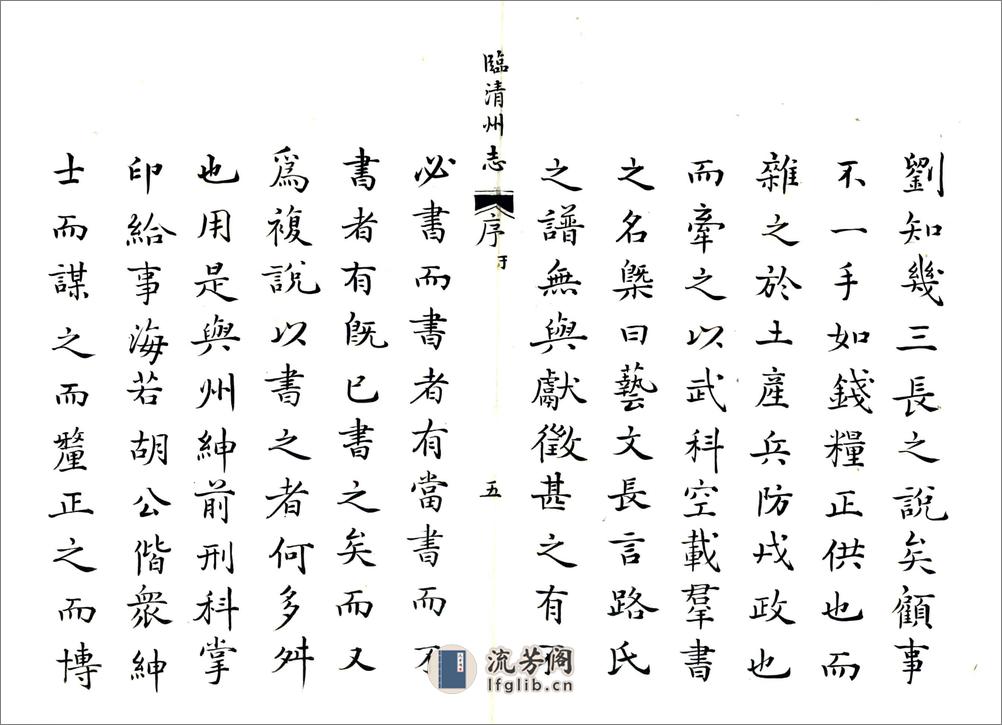 劉知幾三長之說矣顧事
不一手如錢糧正供也而
雜之於土產兵防戎政也
而牽之以武科空載羣書
之名槩曰藝文長言路氏
之譜無與獻徵甚之有不
臨清州志
序
于
五
必書而書者有當書而不
書者有旣已書之矣而又
爲複說以書之者何多舛
也用是與州紳前刑科掌
印給事海若胡公偕衆紳
士而謀之而釐正之而博
流芳阁
lfglib.cn